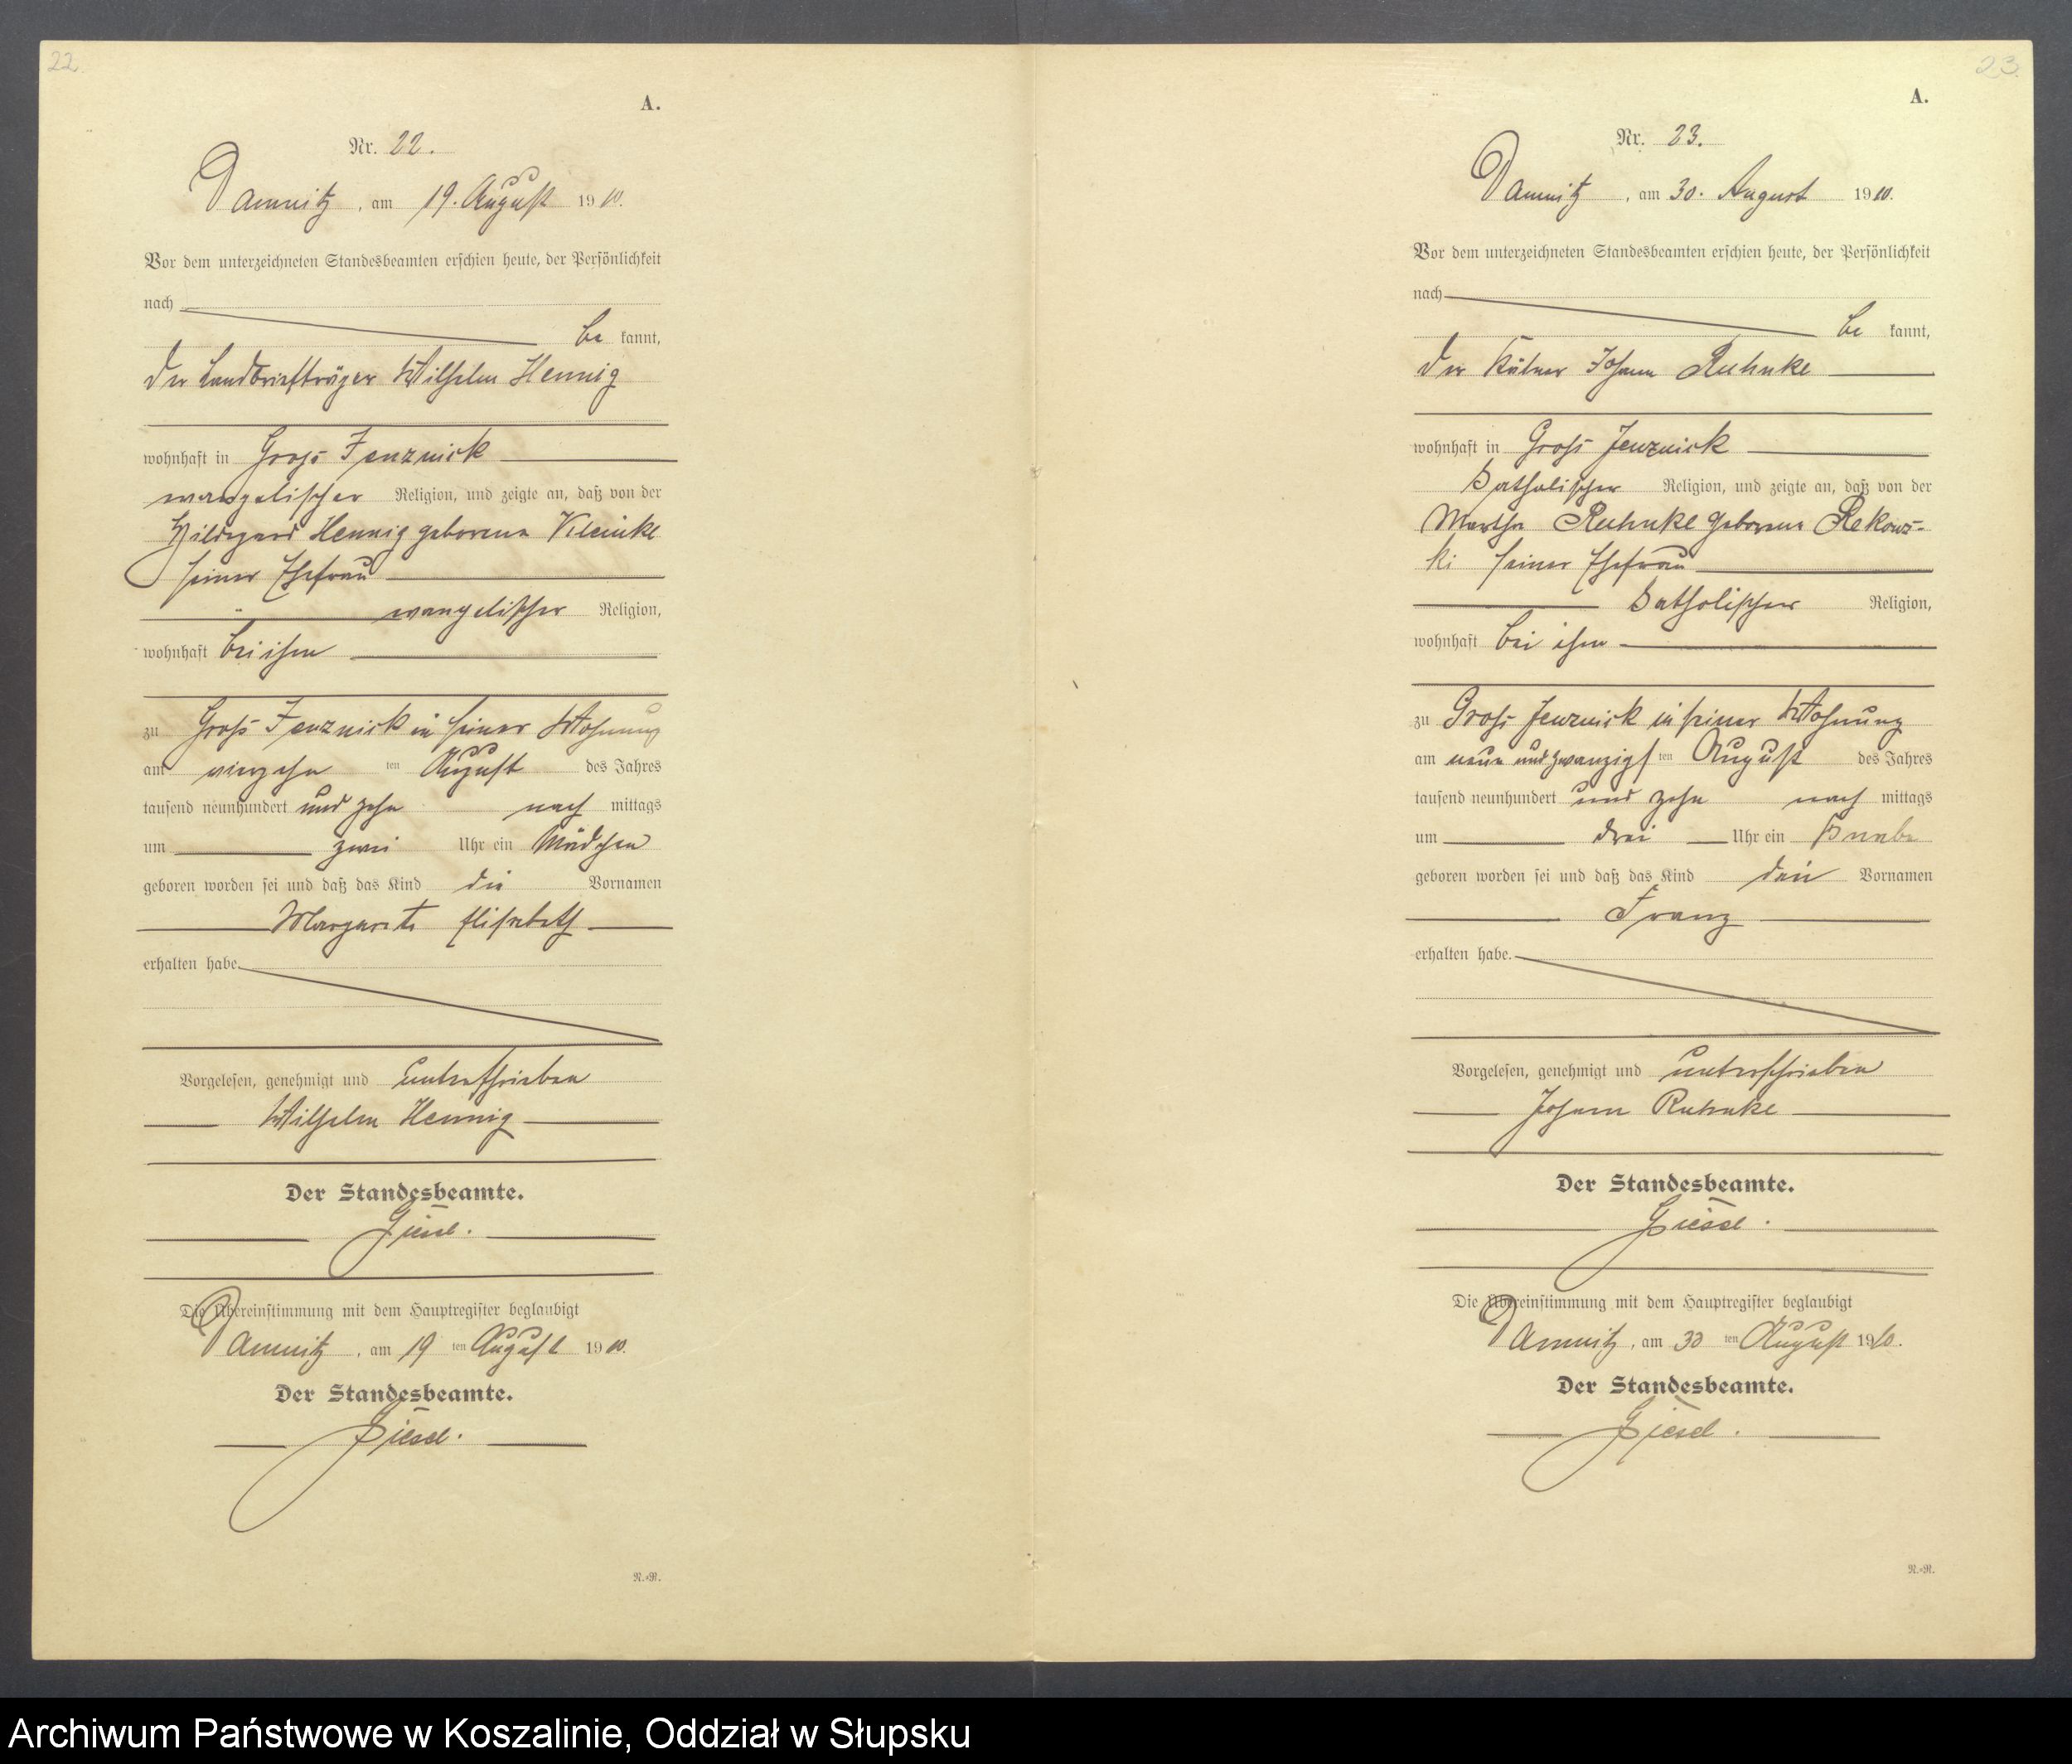 22.
A.
Nr. 22.
Damnitz, am 19. August 1910.
Vor dem unterzeichneten Standesbeamten erschien heute, der Persönlichkeit
nach
be kannt,
der Landbriefträger Wilhelm Hennig
wohnhaft in Gross Jenznick
evangelischer Religion, und zeigte an, daß von der
Hildegard Hennig geborene Kleinke
seiner Ehefrau
evangelischer Religion,
wohnhaft bei ihm
zu Gross Jenznick in seiner Wohnung
am vierzehn ten August des Jahres
tausend neunhundert und zehn nach mittags
um zwei Uhr ein Mädchen
geboren worden sei und daß das Kind die Vornamen
Margarete Elisabeth
erhalten habe.
Vorgelesen, genehmigt und unterschrieben
Wilhelm Hennig
Der Standesbeamte.
Giesel.
Die Übereinstimmung mit dem Hauptregister beglaubigt
Damnitz, am 19 ten August 1910.
Der Standesbeamte.
Giesel.
R.-R.
23.
A.
Nr. 23.
Damnitz, am 30. August 1910.
Vor dem unterzeichneten Standesbeamten erschien heute, der Persönlichkeit
nach
be kannt,
der Kätner Johann Ruhnke
wohnhaft in Gross Jenznick
katholischer Religion, und zeigte an, daß von der
Martha Ruhnke geborene Rekows-
ki seiner Ehefrau
katholischer Religion,
wohnhaft bei ihm
zu Gross Jenznick in seiner Wohnung
am neun und zwanzigs ten August des Jahres
tausend neunhundert und zehn nach mittags
um drei Uhr ein Knabe
geboren worden sei und daß das Kind den Vornamen
Franz
erhalten habe.
Vorgelesen, genehmigt und unterschrieben
Johann Ruhnke
Der Standesbeamte.
Giesel.
Die Übereinstimmung mit dem Hauptregister beglaubigt
Damnitz, am 30 ten August 1910.
Der Standesbeamte.
Giesel.
R.-R.
Archiwum Państwowe w Koszalinie, Oddział w Słupsku